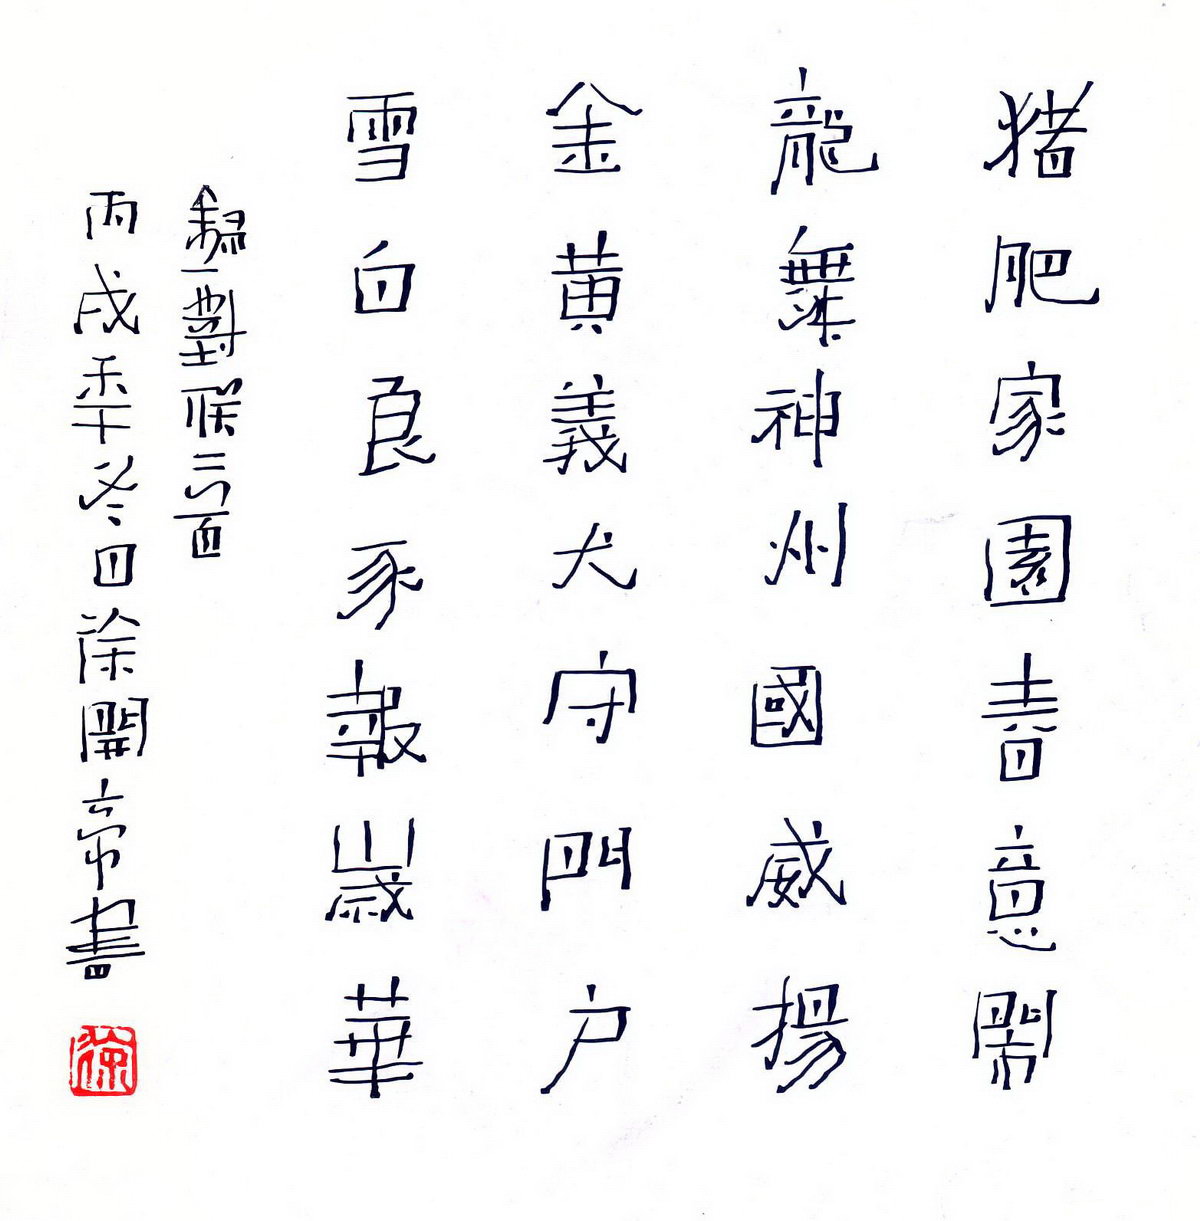 猪肥家園春意鬧
龍舞神州國威揚
金黄義犬守門户
雪白良豕報歲華
録對聯二首
丙戌秊冬日徐開帝書
徐